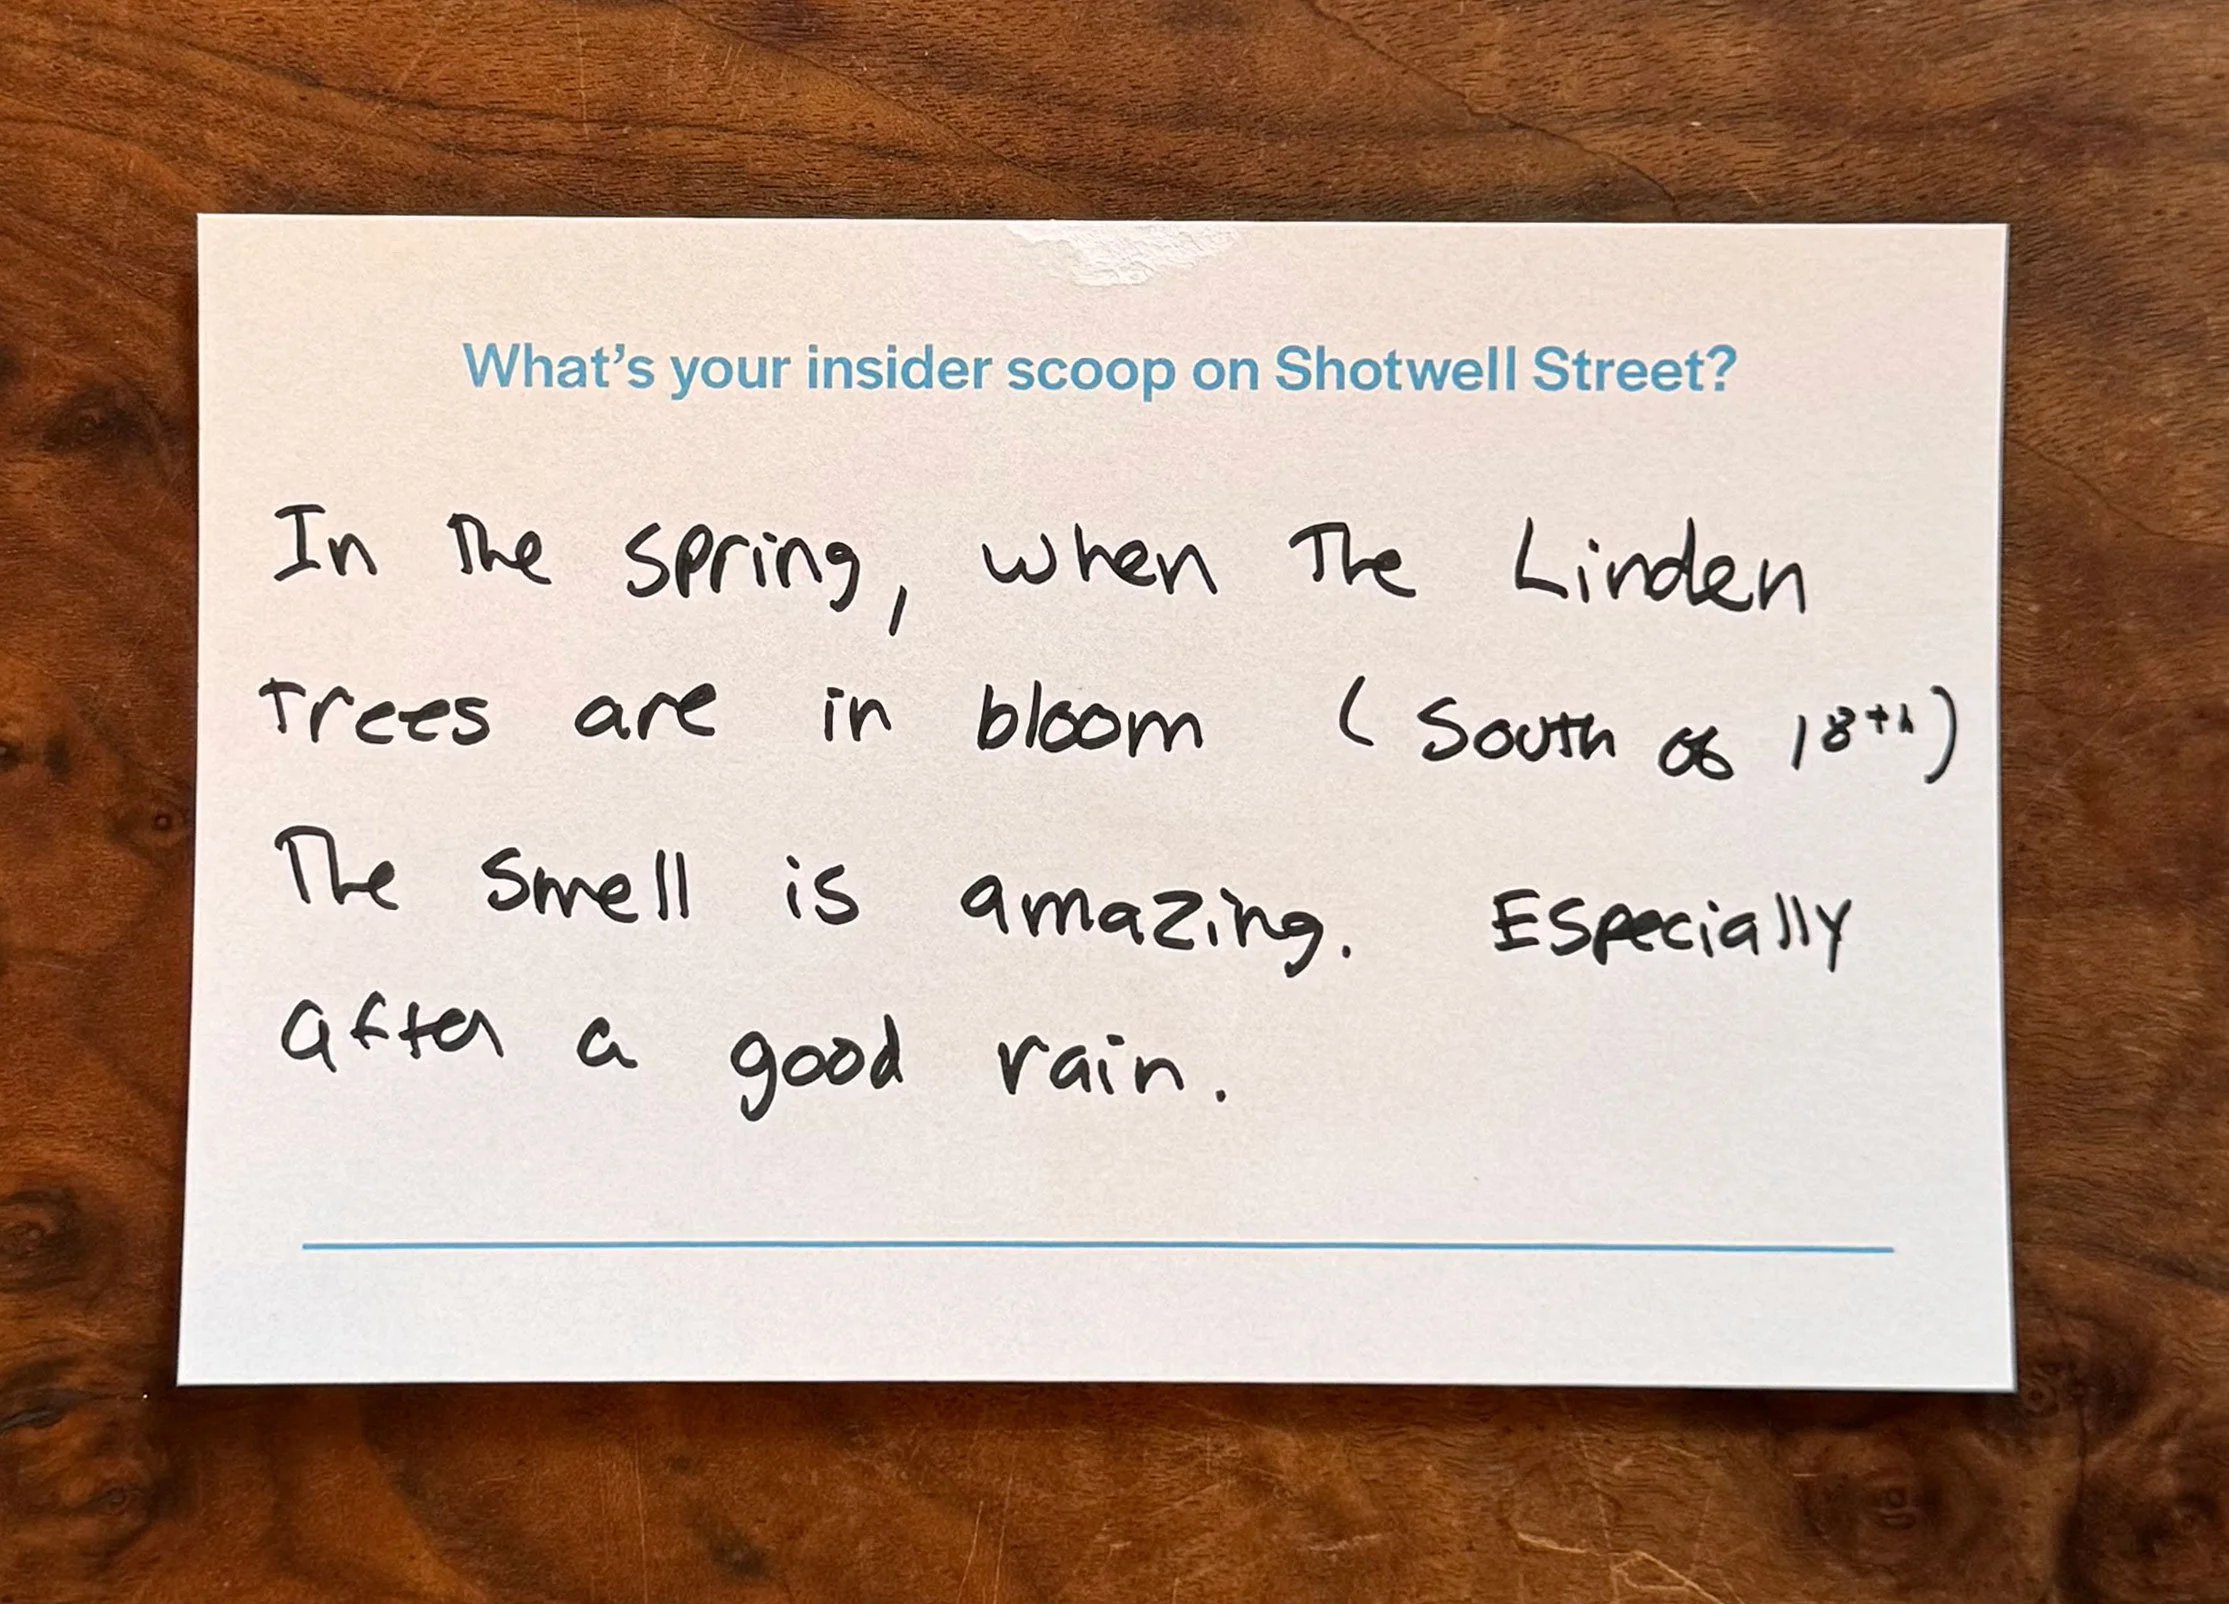 What's your insider scoop on Shotwell Street?
In The spring, when The Linden
Trees are in bloom (South of 18th)
The smell is amazing. Especially
after a good rain.